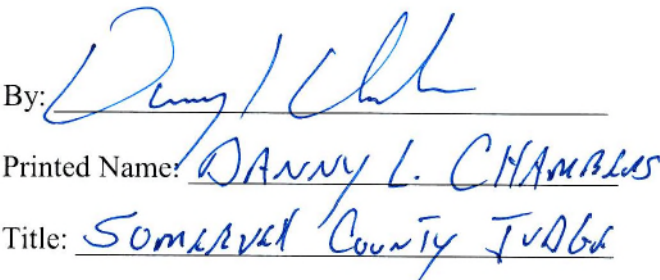 By: Danny L Chambers
Printed Name: DANNY L. CHAMBERS
Title: SOMERVELL COUNTY JUDGE